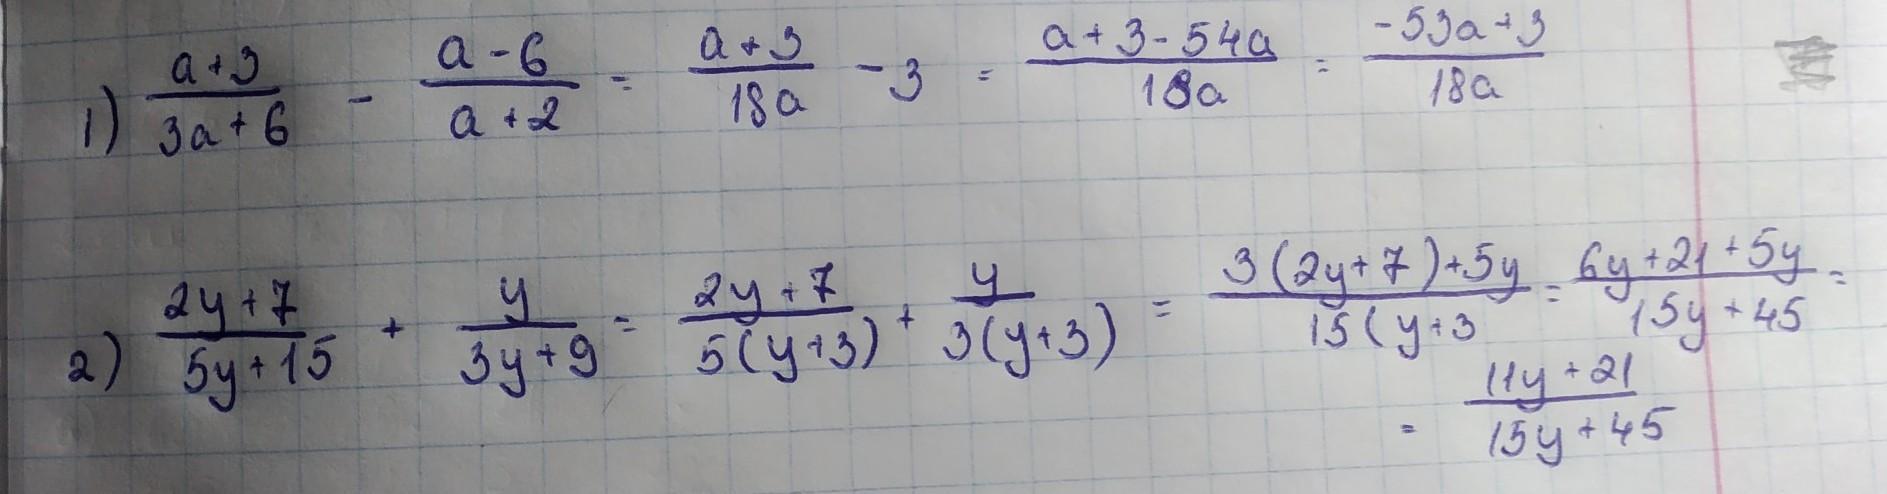 1) (a+3)/(3a+6) - (a-6)/(a+2) = (a+3)/(18a) - 3 = (a+3-54a)/(18a) = (-53a+3)/(18a)
2) (2y+7)/(5y+15) + y/(3y+9) = (2y+7)/(5(y+3)) + y/(3(y+3)) = (3(2y+7)+5y)/(15(y+3) = (6y+21+5y)/(15y+45) =
= (11y+21)/(15y+45)